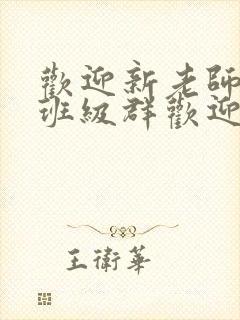 歡迎新老師
班級群歡迎
王衛華